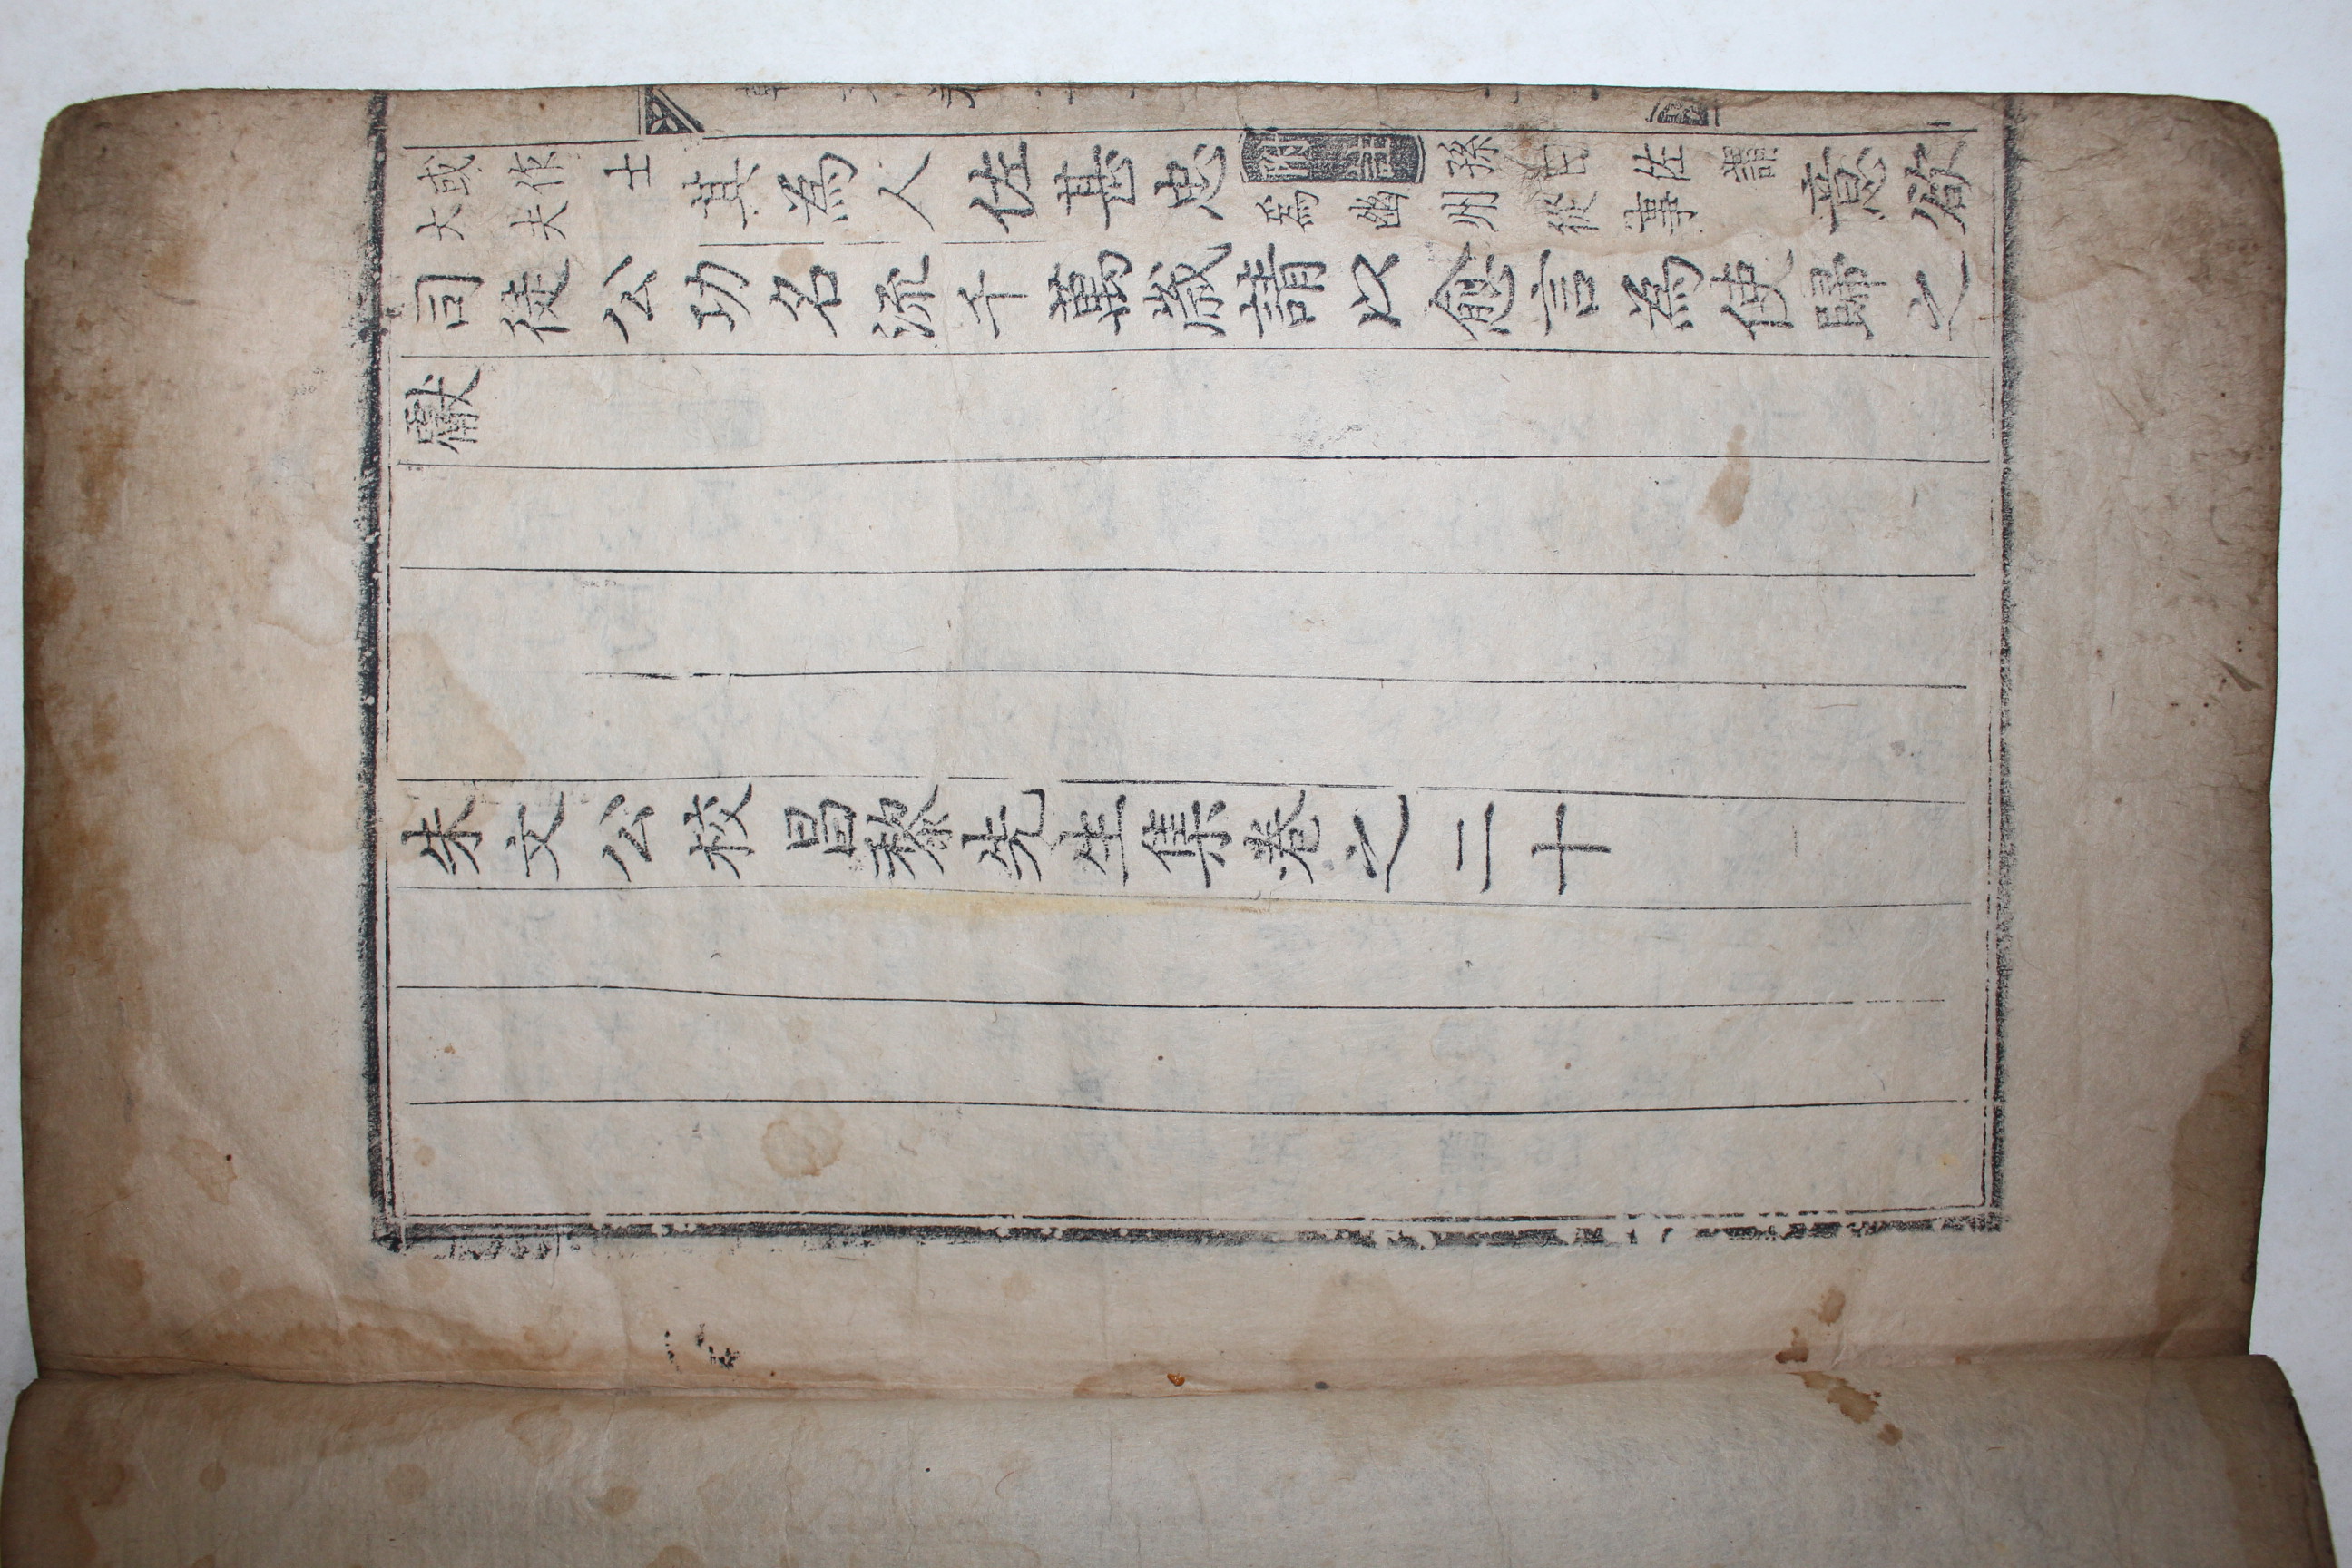 或作士大夫其為人佐甚忠補註孫曰佐謂為幽州從事意欲
司徒公功名流千萬歲請以愈言為使歸之
獻
朱文公校昌黎先生集卷之二十